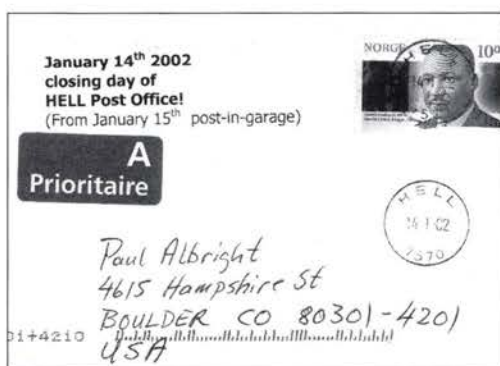 January 14th 2002
closing day of
HELL Post Office!
(From January 15th post-in-garage)
NORGE 10
A
Prioritaire
HELL
14 1 02
7570
Paul Albright
4615 Hampshire St
BOULDER CO 80301-4201
01+4210
USA